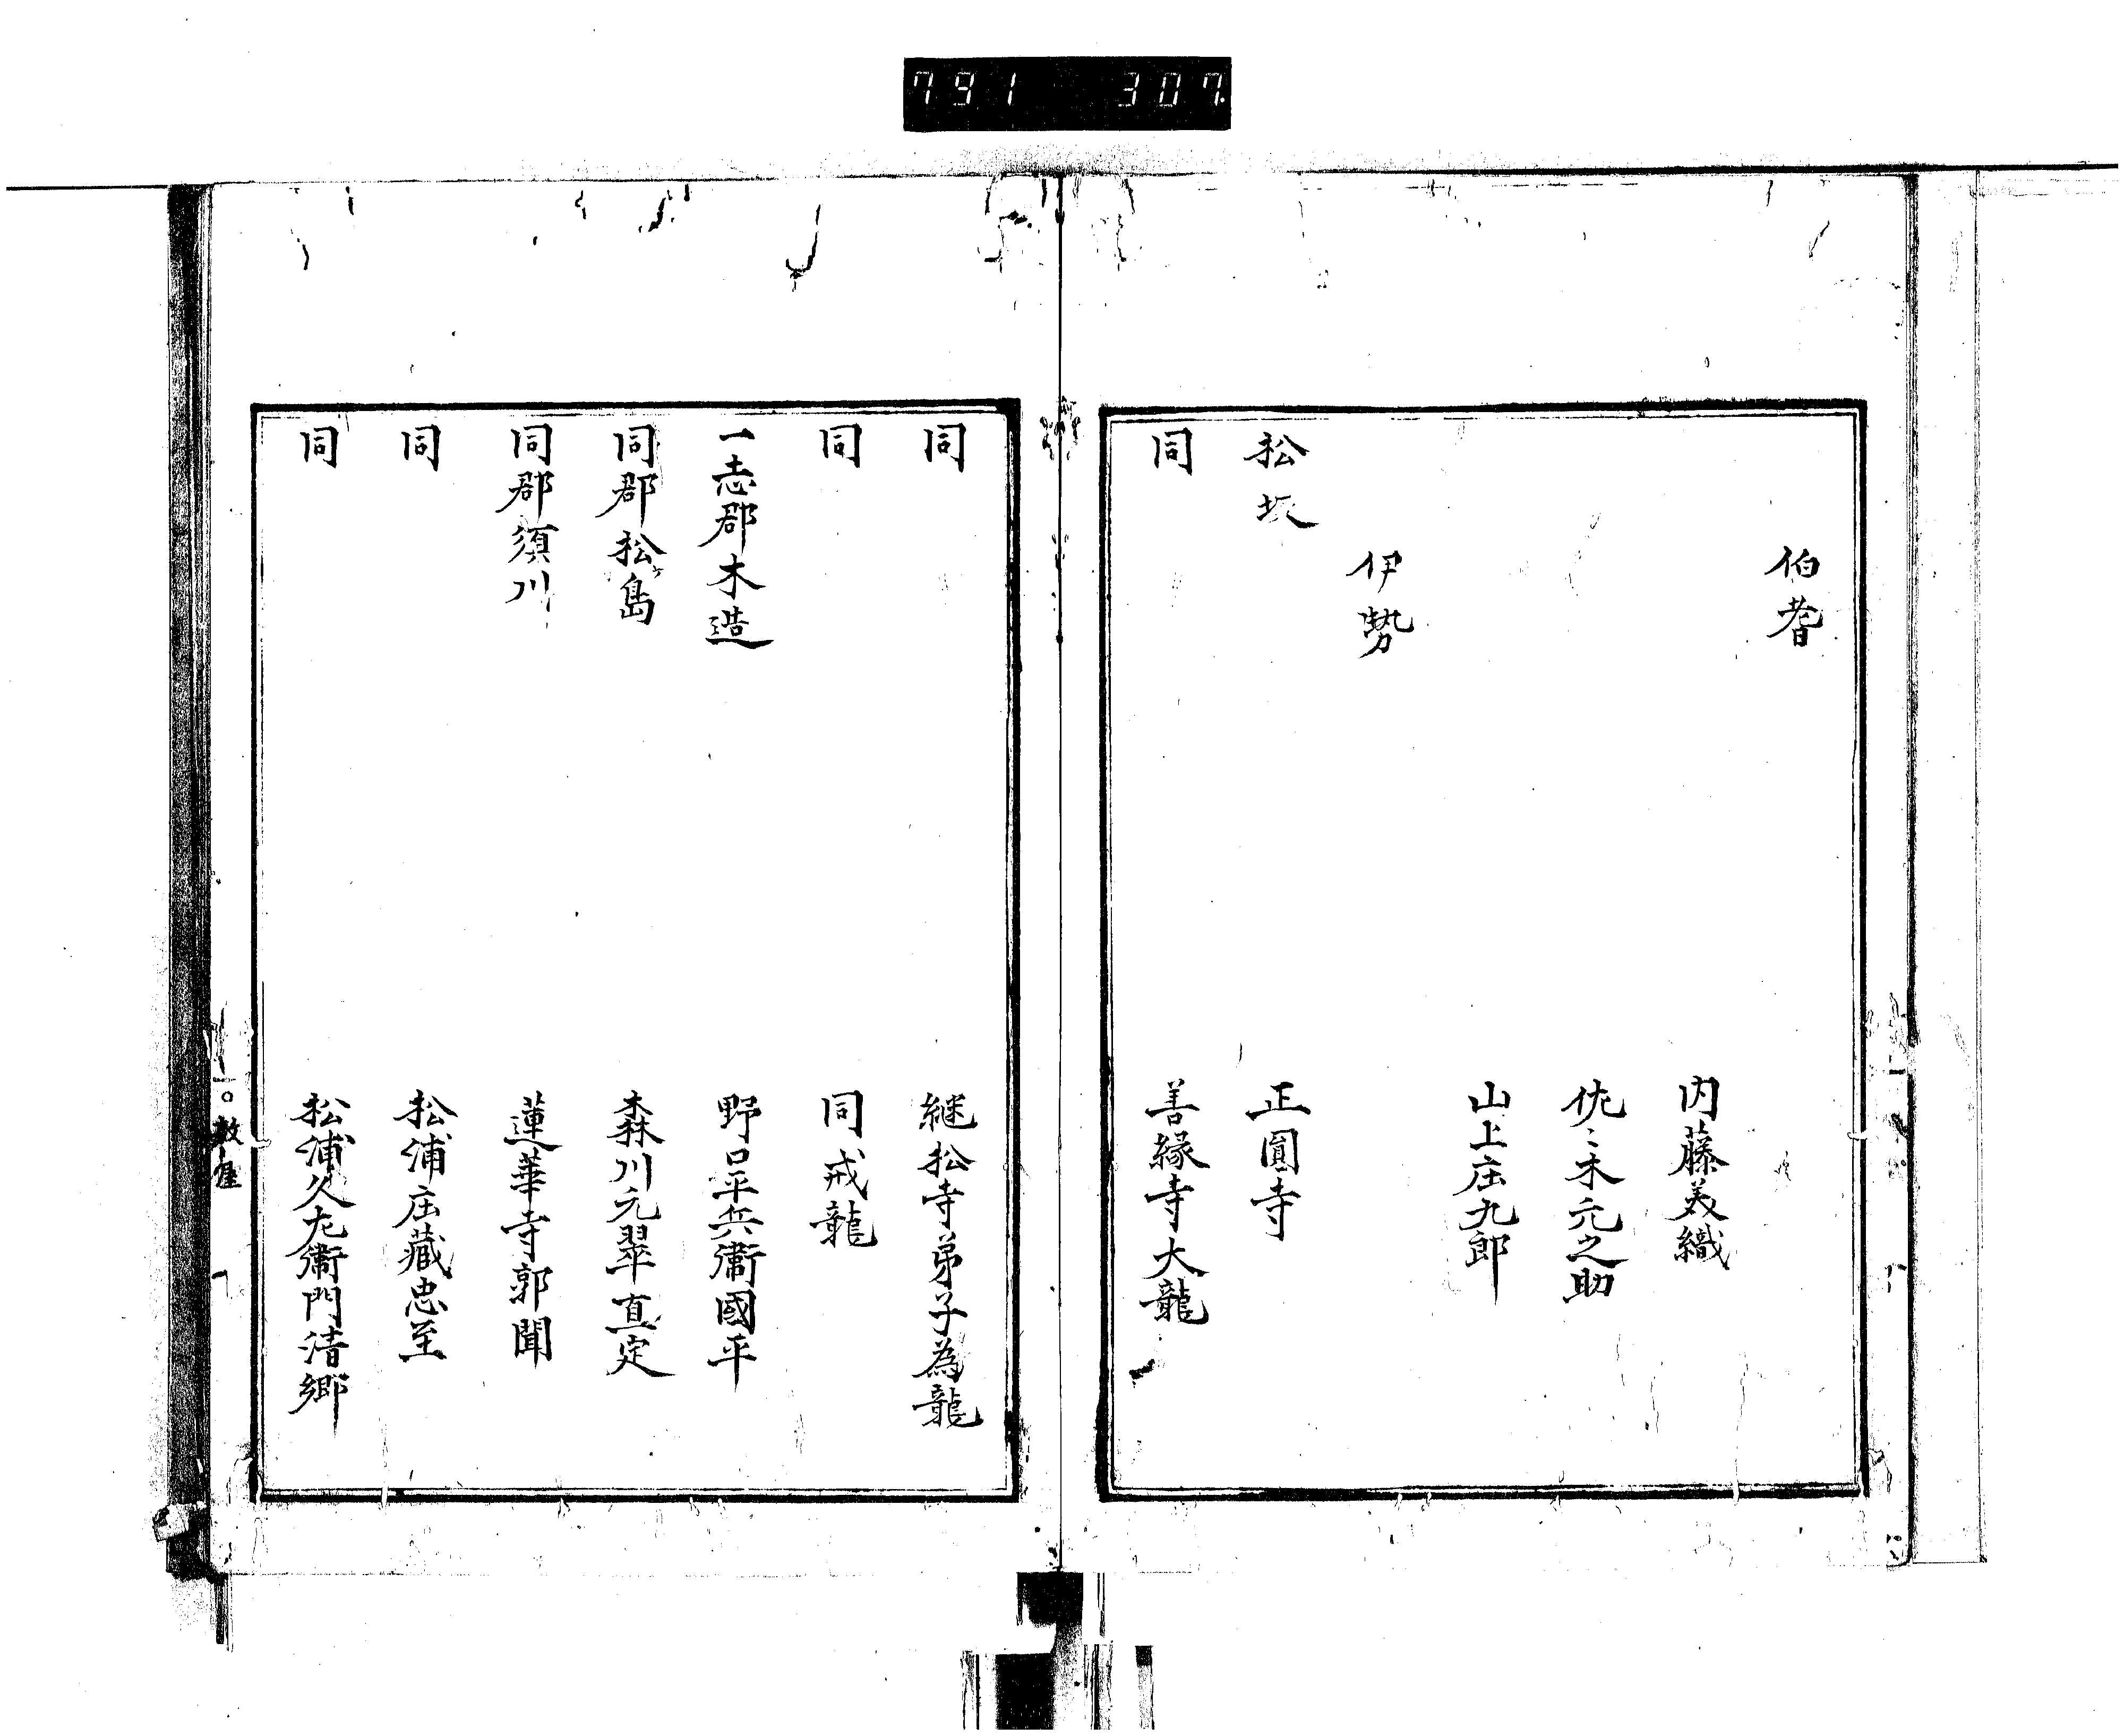 791 307
伯耆
内藤美織
佐々木元之助
山上庄九郎
伊勢
松坂 正圓寺
同 善縁寺大龍
同 継松寺弟子為龍
同 同戒龍
一志郡木造 野口平兵衞國平
同郡松島 森川元翠直定
同郡須川 蓮華寺郭聞
同 松浦庄藏忠至
同 松浦久左衞門清郷